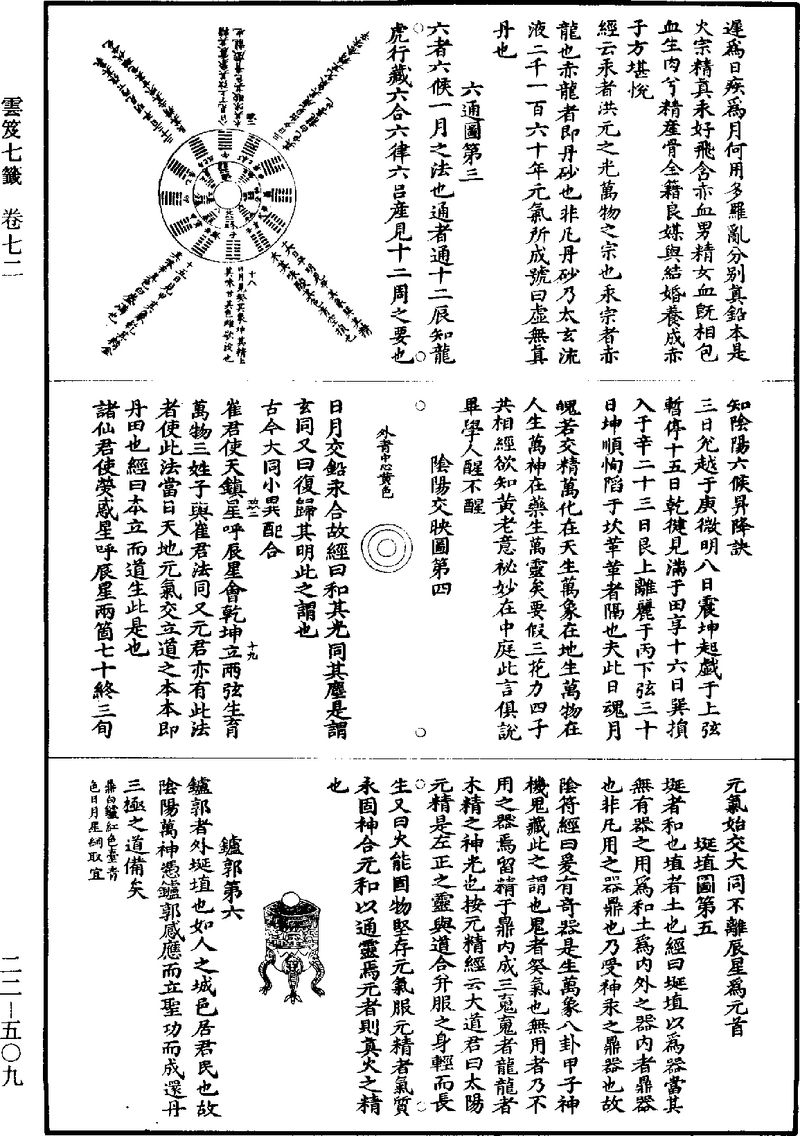 雲笈七籤 卷七二
二二—五〇九
遲爲日疾爲月何用多羅亂分別真鉛本是
火宗精真汞好飛含亦血男精女血既相包
血生肉兮精產骨全籍良媒與結婚養成赤
子方堪悅
經云汞者洪元之光萬物之宗也汞宗者赤
龍也赤龍者即丹砂也非凡丹砂乃太玄流
液二千一百六十年元氣所成號曰虛無真
丹也
六通圖第三
六者六候一月之法也通者通十二辰知龍
虎行藏六合六律六呂產見十二周之要也
十八
知陰陽六候昇降訣
三日兊越于庚微明八日震坤起戲于上弦
暫停十五日乾健見滿于田享十六日巽損
入于辛二十三日艮上離麗于丙下弦三十
日坤順恂陷于坎葷葷者隔也夫此日魂月
魄若交精萬化在天生萬象在地生萬物在
人生萬神在藥生萬靈矣要假三花力四子
共相經欲知黃老意祕妙在中庭此言俱說
畢學人醒不醒
陰陽交映圖第四
外青中心黃色
日月交鉛汞合故經曰和其光同其塵是謂
玄同又曰復歸其明此之謂也
古今大同小異配合
崔君使天鎮星呼辰星會乾坤立兩弦生育
十九
萬物三姓子與崔君法同又元君亦有此法
者使此法當日天地元氣交立道之本本即
丹田也經曰本立而道生此是也
諸仙君使熒惑星呼辰星兩箇七十終三旬
元氣始交大同不離辰星爲元首
埏埴圖第五
埏者和也埴者土也經曰埏埴以爲器當其
無有器之用爲和土爲內外之器內者鼎器
也非凡用之器鼎也乃受神汞之鼎器也故
陰符經曰爰有奇器是生萬象八卦甲子神
機鬼藏此之謂也鬼者癸氣也無用者乃不
用之器焉留精于鼎內成三䰠䰠者龍龍者
木精之神光也按元精經云大道君曰太陽
元精是左正之靈與道合并服之身輕而長
生又曰火能固物堅存元氣服元精者氣質
永固神合元和以通靈焉元者則真火之精
也
鑪郭第六
鑪郭者外埏埴也如人之城邑居君民也故
陰陽萬神憑鑪郭感應而立聖功而成還丹
三極之道備矣
鼎白鑪紅色臺青
色日月星綱取宜